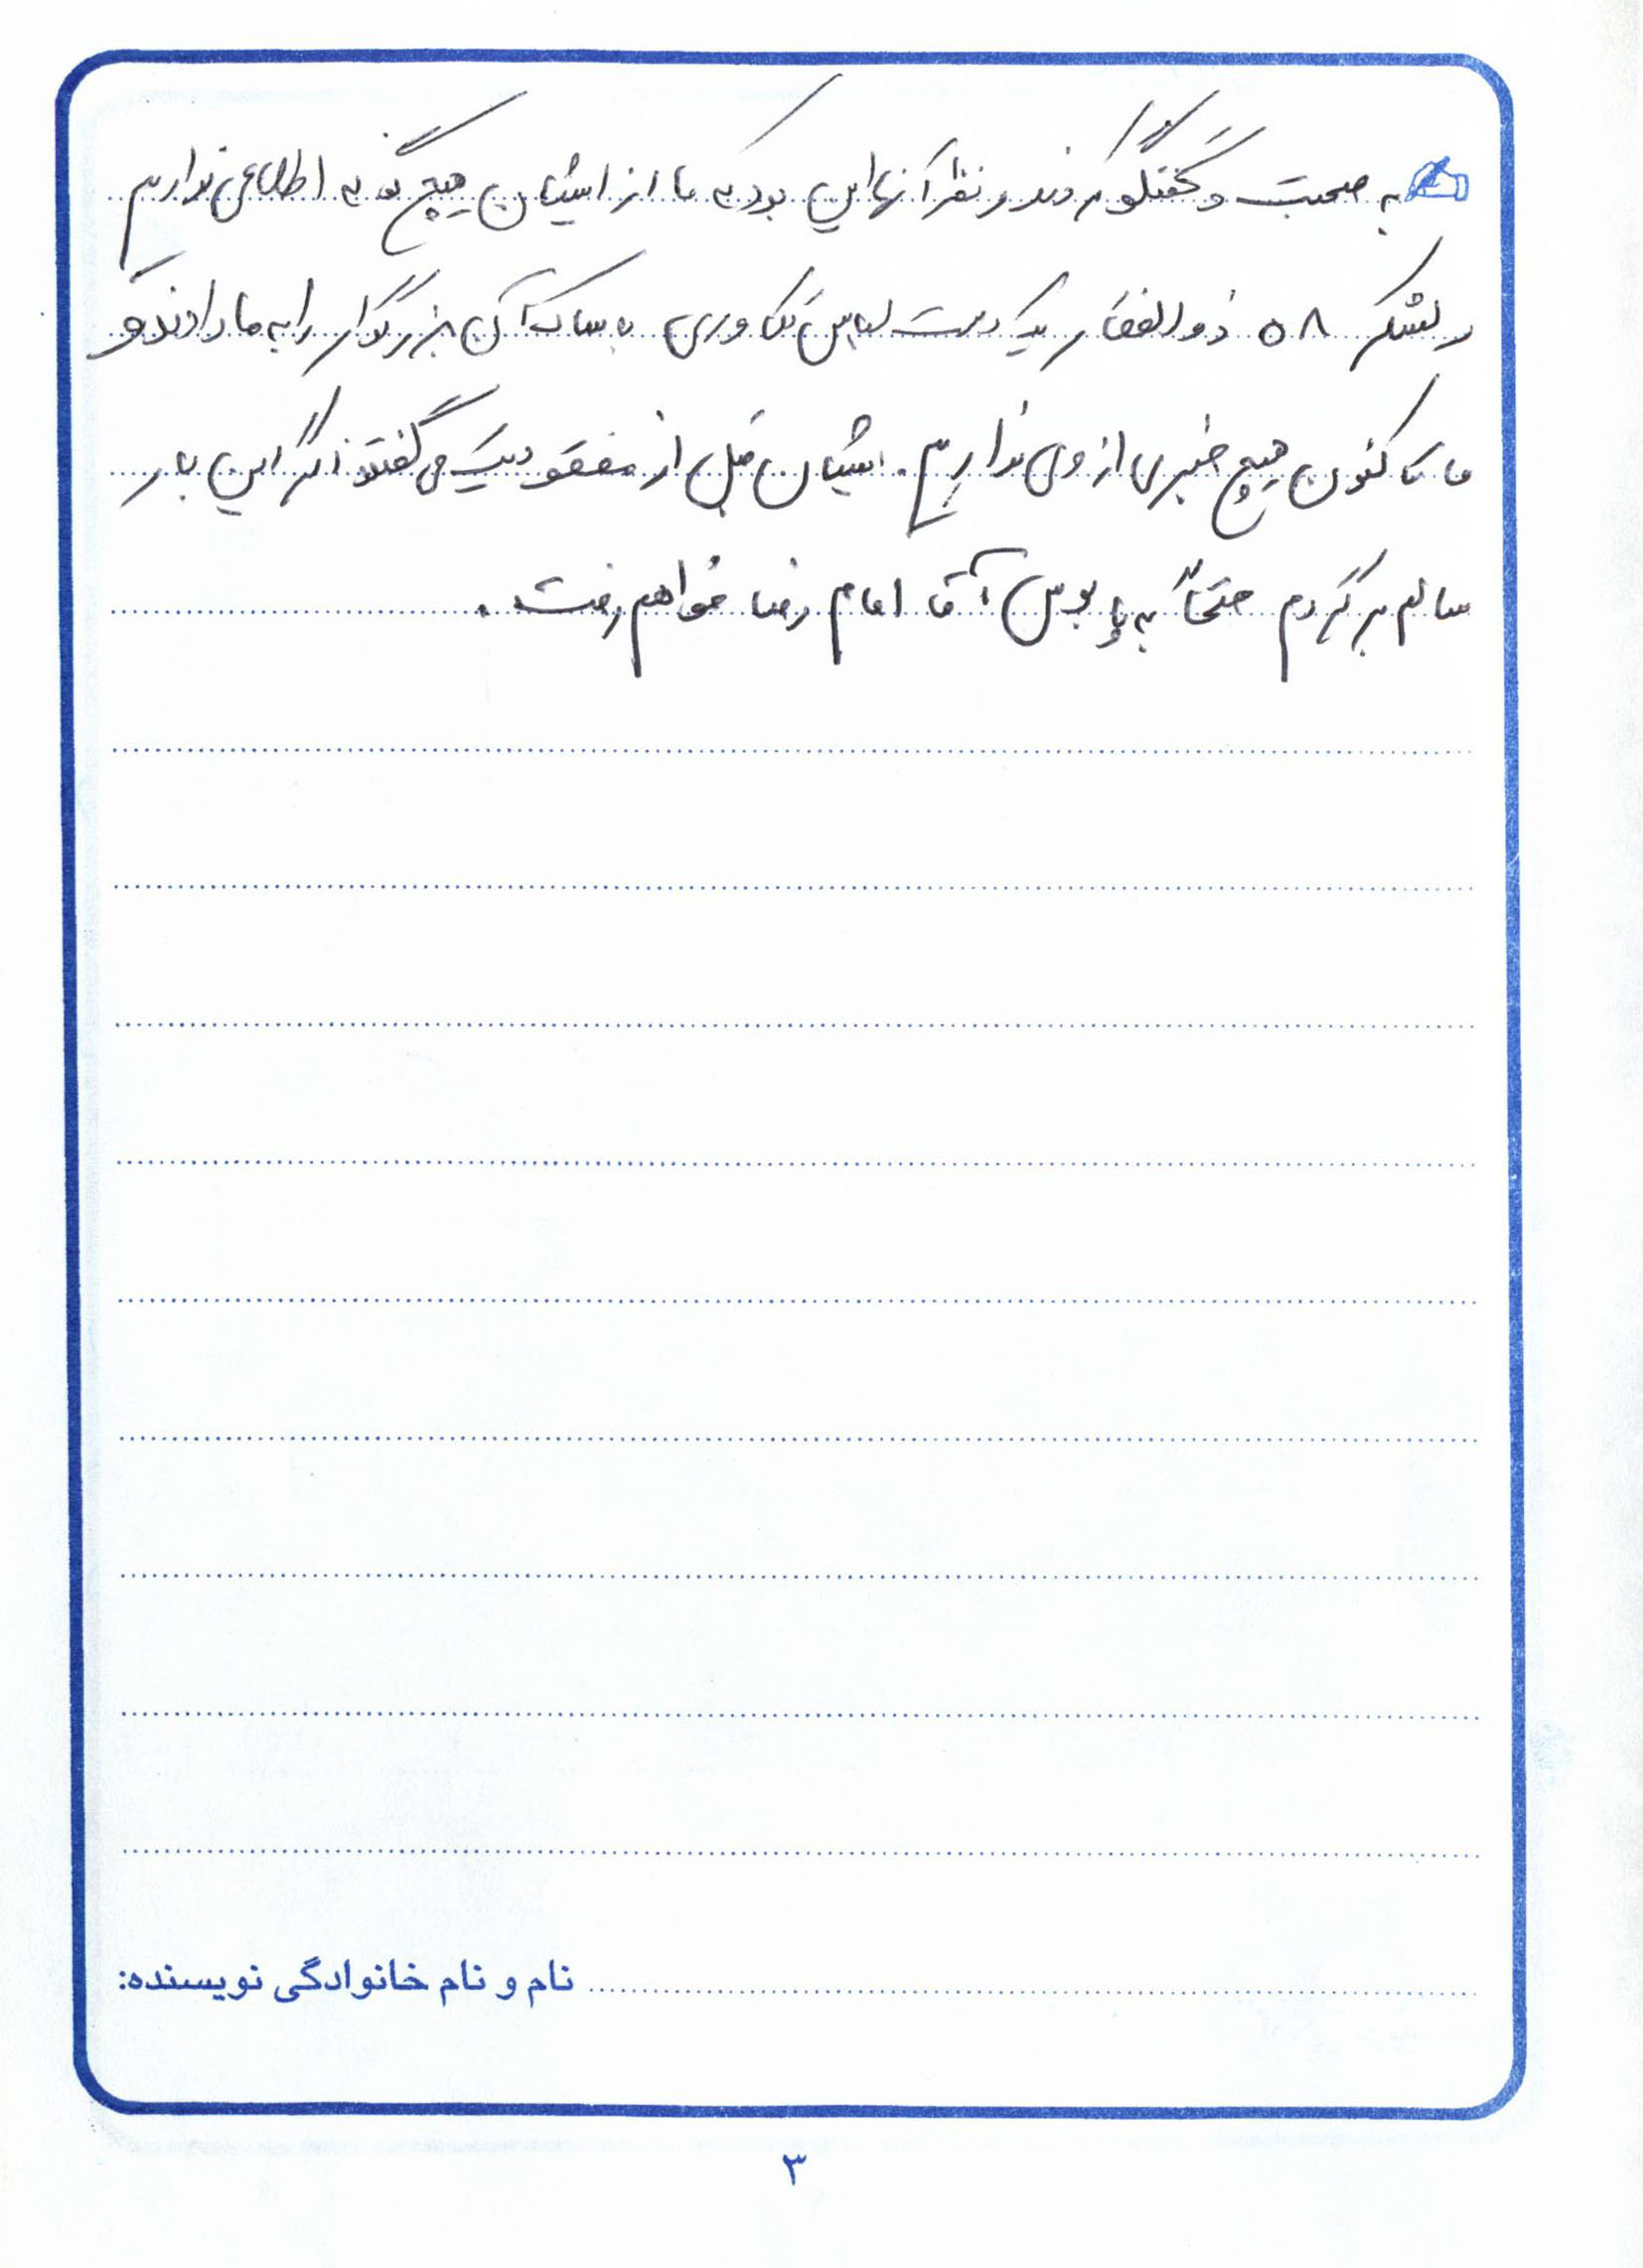 به صحبت و گفتگو کردند و نظر آنها این بود که ما از ایشان هیچ گونه اطلاعی نداریم
و لشکر ۵۸ ذوالفقار یک دست لباس تکاوری با ساک آن بزرگوار را به ما دادند و
ما تاکنون هیچ خبری از وی نداریم. ایشان قبل از مفقودیت می گفتند اگر این بار
سالم برگردم حتماً به پابوس آقا امام رضا خواهم رفت.
نام و نام خانوادگی نویسنده:
۳